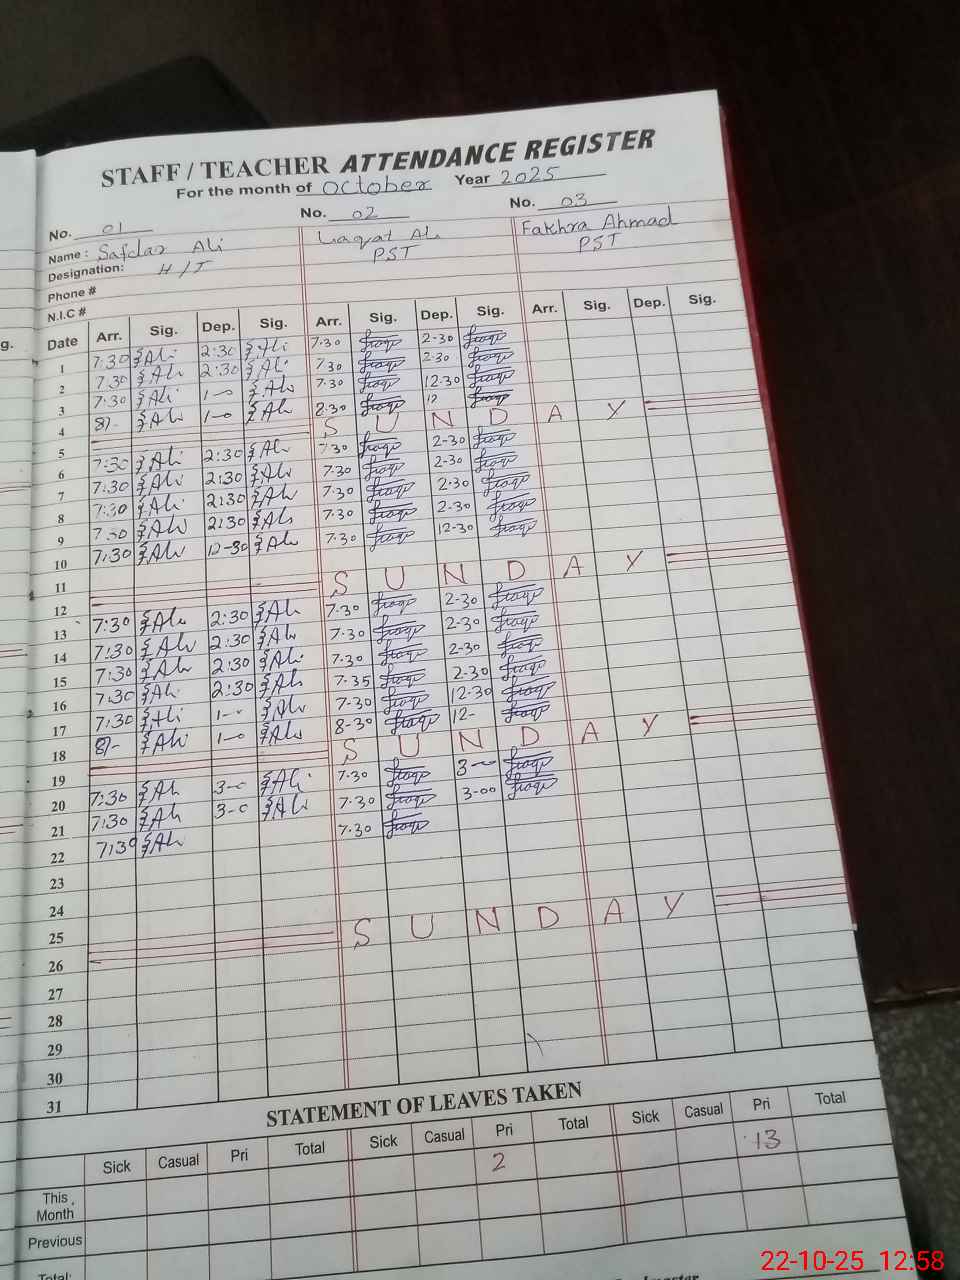 STAFF / TEACHER ATTENDANCE REGISTER
For the month of October Year 2025
No. 01 No. 02 No. 03
Name : Safdar Ali Liaqat Ali Fakhra Ahmad
Designation: H/T PST PST
Phone #
N.I.C #
g.
Date Arr. Sig. Dep. Sig. Arr. Sig. Dep. Sig. Arr. Sig. Dep. Sig.
1 7:30 Ali 2:30 Ali 7-30 2-30
2 7:30 Ali 2:30 Ali 7-30 2-30
3 7:30 Ali 1-0 Ali 7-30 12-30
4 8/- Ali 1-0 Ali 8-30 12
5 S U N D A Y
6 7:30 Ali 2:30 Ali 7-30 2-30
7 7:30 Ali 2:30 Ali 7-30 2-30
8 7:30 Ali 2:30 Ali 7-30 2-30
9 7:30 Ali 2:30 Ali 7-30 2-30
10 7:30 Ali 12-30 Ali 7-30 12-30
11
12 S U N D A Y
13 7:30 Ali 2:30 Ali 7-30 2-30
14 7:30 Ali 2:30 Ali 7-30 2-30
15 7:30 Ali 2:30 Ali 7-30 2-30
16 7:30 Ali 2:30 Ali 7-35 2-30
17 7:30 Ali 1-0 Ali 7-30 12-30
18 8/- Ali 1-0 Ali 8-30 12-
19 S U N D A Y
20 7:30 Ali 3-0 Ali 7-30 3-0
21 7:30 Ali 3-0 Ali 7-30 3-00
22 7:30 Ali 7-30
23
24
25
26 S U N D A Y
27
28
29
30
31
STATEMENT OF LEAVES TAKEN
Sick Casual Pri Total Sick Casual Pri Total Sick Casual Pri Total
This Month 2 13
Previous
Total:
22-10-25 12:58